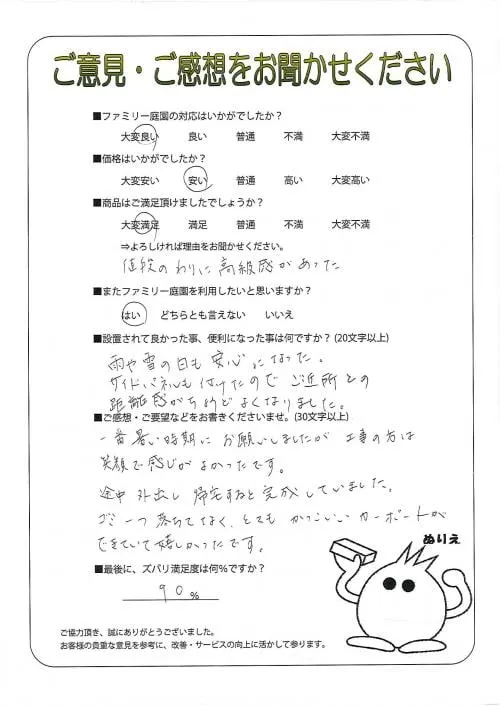 ご意見・ご感想をお聞かせください
■ファミリー庭園の対応はいかがでしたか?
大変良い 良い 普通 不満 大変不満
■価格はいかがでしたか?
大変安い 安い 普通 高い 大変高い
■商品はご満足頂けましたでしょうか?
大変満足 満足 普通 不満 大変不満
⇒よろしければ理由をお聞かせください。
値段のわりに高級感があった
■またファミリー庭園を利用したいと思いますか?
はい どちらとも言えない いいえ
■設置されて良かった事、便利になった事は何ですか?(20文字以上)
雨や雪の日も安心になった。
サイドパネルも付けたのでご近所との
距離感がちょうどよくなりました。
■ご感想・ご要望などをお書きくださいませ。(30文字以上)
一番暑い時期にお願いしましたが工事の方は
笑顔で感じがよかったです。
途中外出し帰宅すると完成していました。
ゴミ一つ落ちてなく、とてもかっこいいカーポートが
できていて嬉しかったです。
ぬりえ
■最後に、ズバリ満足度は何%ですか?
90%
ご協力頂き、誠にありがとうございました。
お客様の貴重な意見を参考に、改善・サービスの向上に活かして参ります。